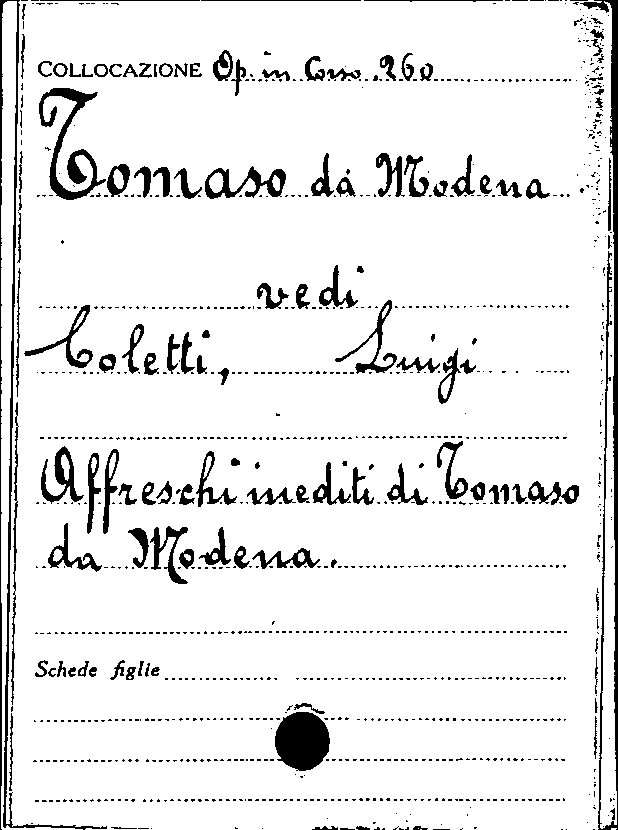 COLLOCAZIONE Op. in Corso .260
Tomaso da Modena
vedi
Coletti, Luigi
Affreschi inediti di Tomaso
da Modena.
Schede figlie